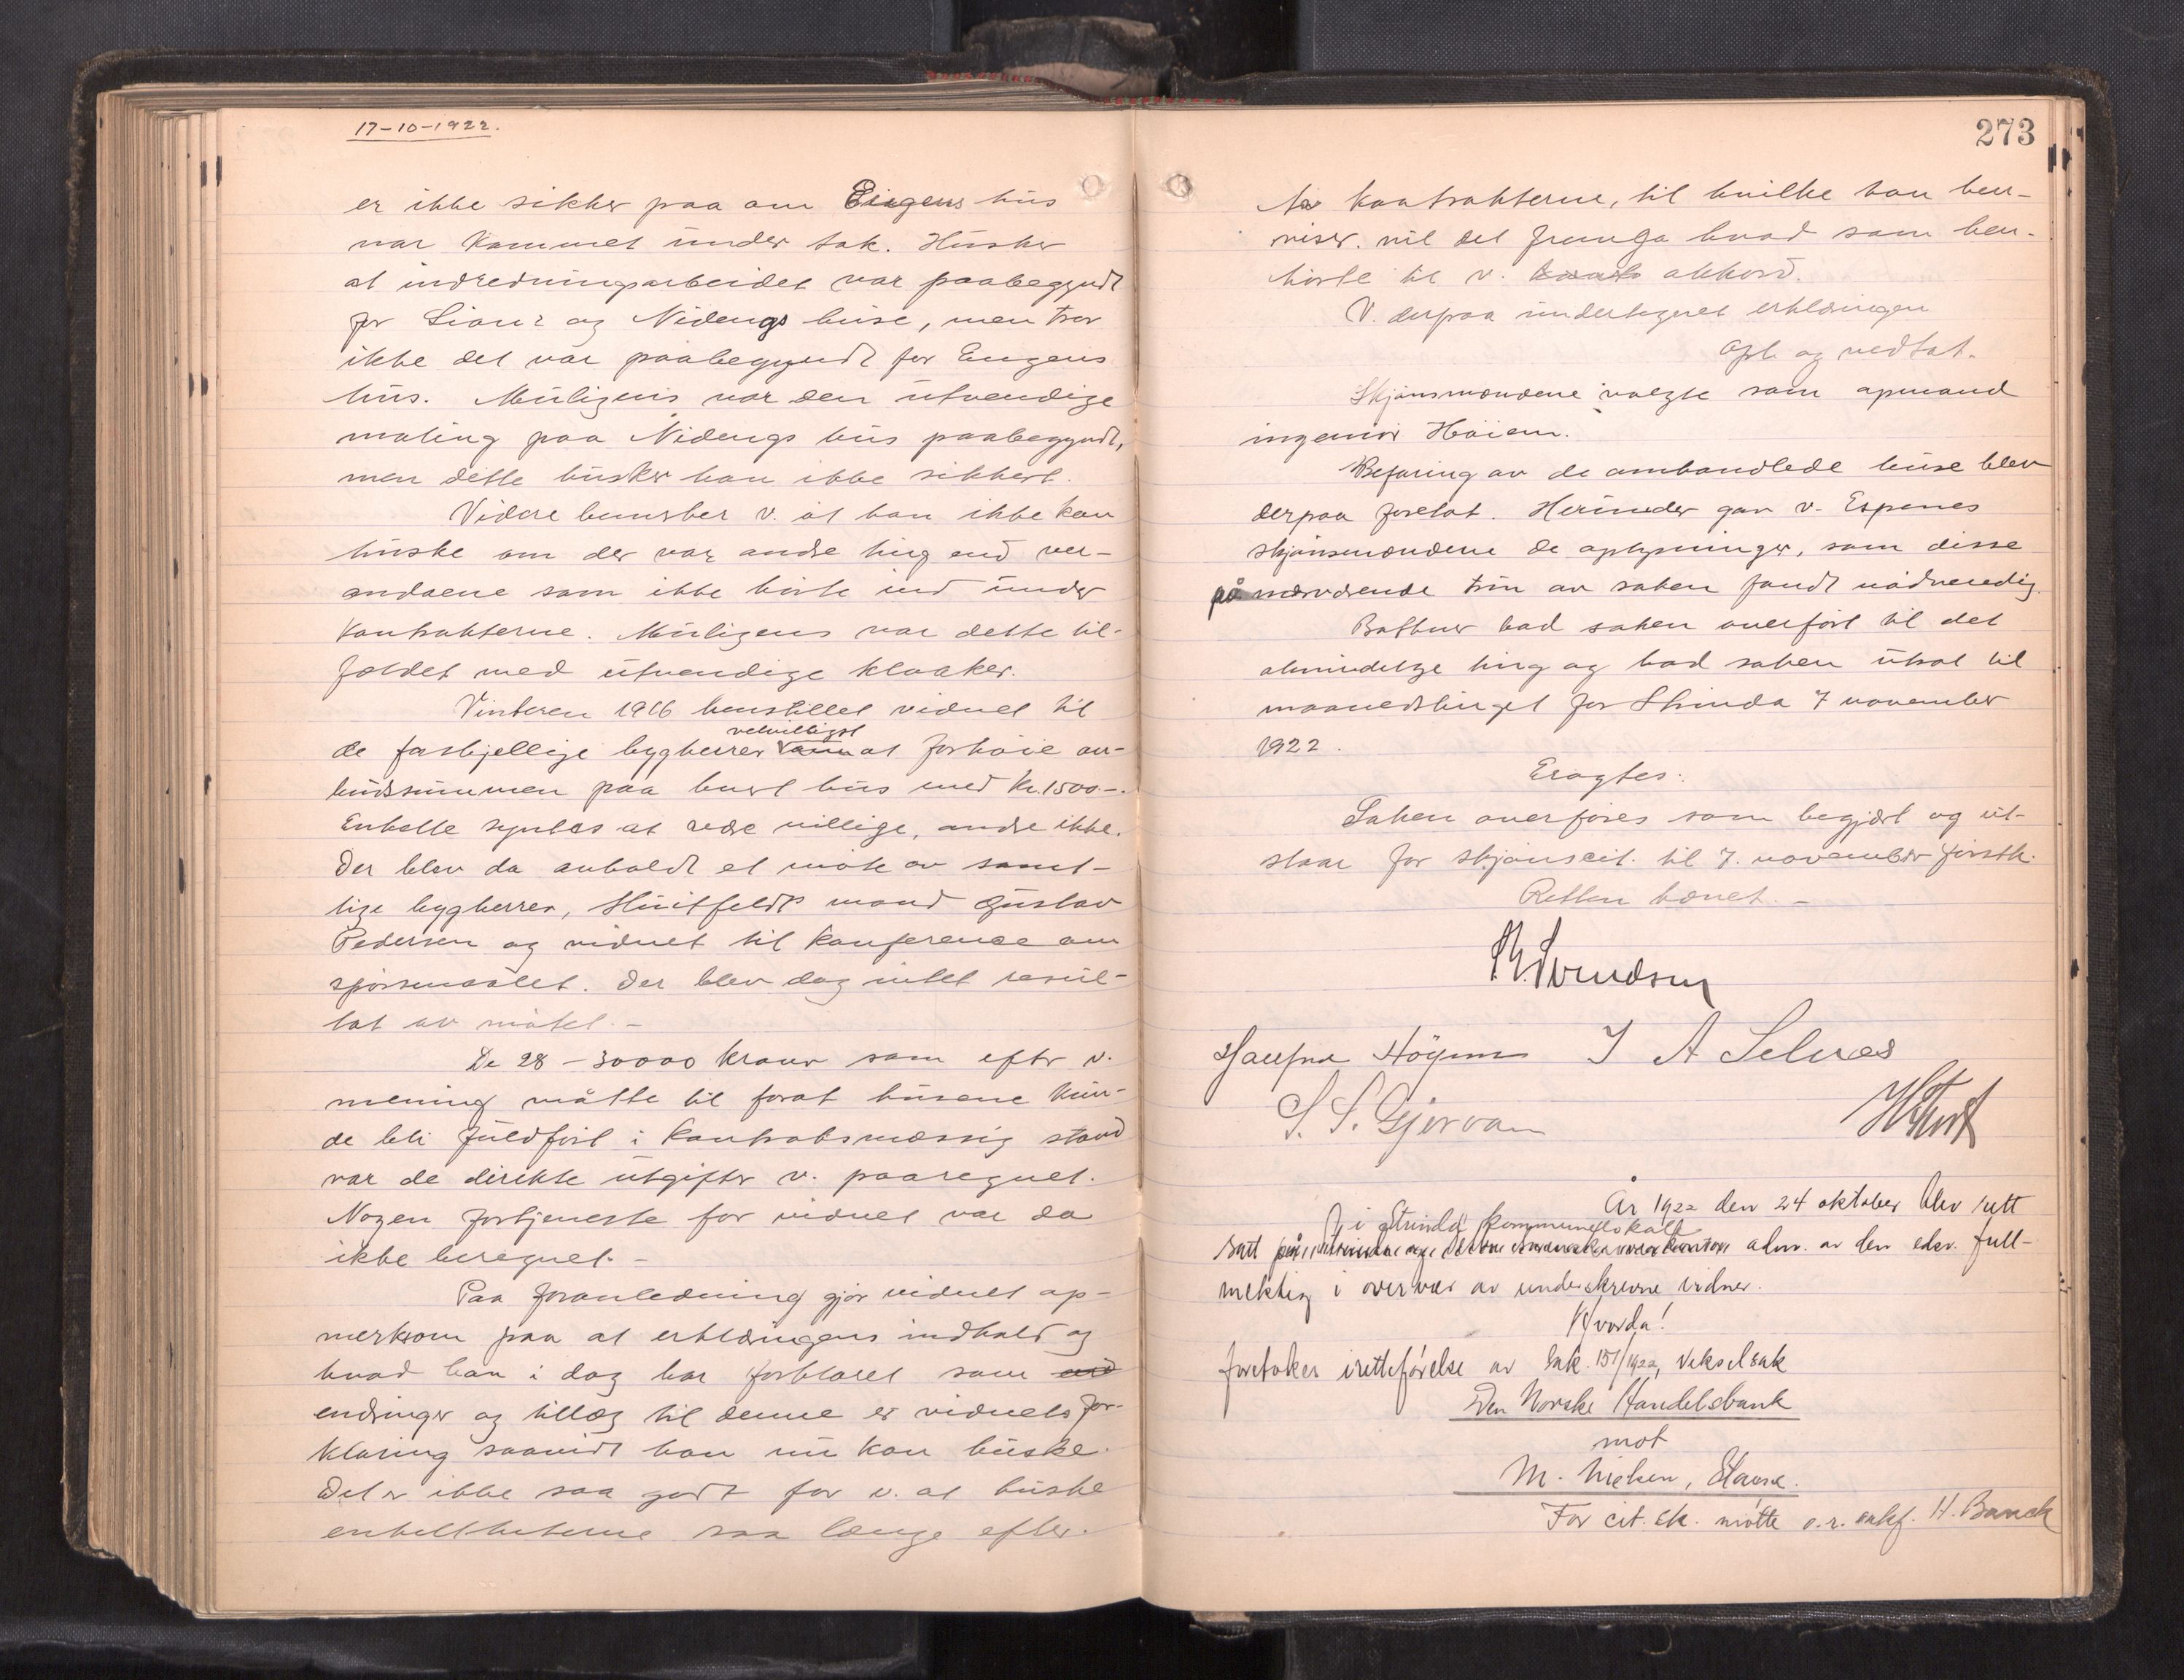 17-10-1922.
er ikke sikker paa om Eugens hus
var kommet under tak. Husker
at indredningsarbeidet var paabegyndt
for Lians og Nidengs huse, men tror
ikke det var paabegyndt for Eugens
hus. Muligens var den utvendige
maling paa Nidengs hus paabegyndt,
men dette husker han ikke sikkert.
Videre bemerker v. at han ikke kan
huske om der var andre ting end ver-
andaene som ikke hørte ind under
kontrakterne. Muligens var dette til-
fældet med utvendige kloaker.
Vinteren 1916 henstillet vidnet til
velvilligst
de forskjellige bygherrer at forhøie an-
budssummen paa hvert hus med kr. 1500.-.
Enkelte syntes at være villige, andre ikke.
Der blev da avholdt et møte av samt-
lige bygherrer, Huitfeldts mand Gustav
Pedersen og vidnet til konference om
spørsmaalet. Der blev dog intet resul-
tat av møtet.-
De 28-30000 kroner som efter v.
mening måtte til forat husene kun-
de bli fuldført i kontraktsmæssig stand
var de direkte utgifter v. paaregnet.
Nogen fortjeneste for vidnet var da
ikke beregnet.-
Paa foranledning gjør vidnet op-
merksom paa at erklæringens indhold og
hvad han i dag har forklaret som
endringer og tillæg til denne er vidnets for-
klaring saavidt han nu kan huske.
Det er ikke saa godt for v. at huske
enkeltheterne saa længe efter.
273
Av kontrakterne, til hvilke han hen-
viser, vil det fremgå hvad som hen-
hørte til v. akkord.
V. derpaa undertegnet erklæringen
Opl. og vedtat.
Skjønsmændene valgte som opmand
ingeniør Høiem.
Befaring av de omhandlede huse blev
derpaa foretat. Herunder gav v. Espenes
skjønsmændene de oplysninger, som disse
på nærværende trin av saken fandt nødvendig.
Bøttner bad saken overført til det
almindelige ting og bad saken utsat til
maanedstinget for Strinda 7 november
1922.
Eragtes:
Saken overføres som begjært og ut-
staar for skjønscit. til 7. november førstk.
Retten hævet.-
Svendsen
J A Selnæs
S. S. Gjervan
År 1922 den 24 oktober blev rett
i Strinda kommunelokale
satt adm. av den edsv. full-
mektig i overvær av underskrevne vidner.
Hvorda!
foretokes iretteførelse av sak. 151/1922, vekselsak
Den Norske Handelsbank
mot
M. Nielsen,
For cit. sk. møtte o.r. sakf. H. Banck